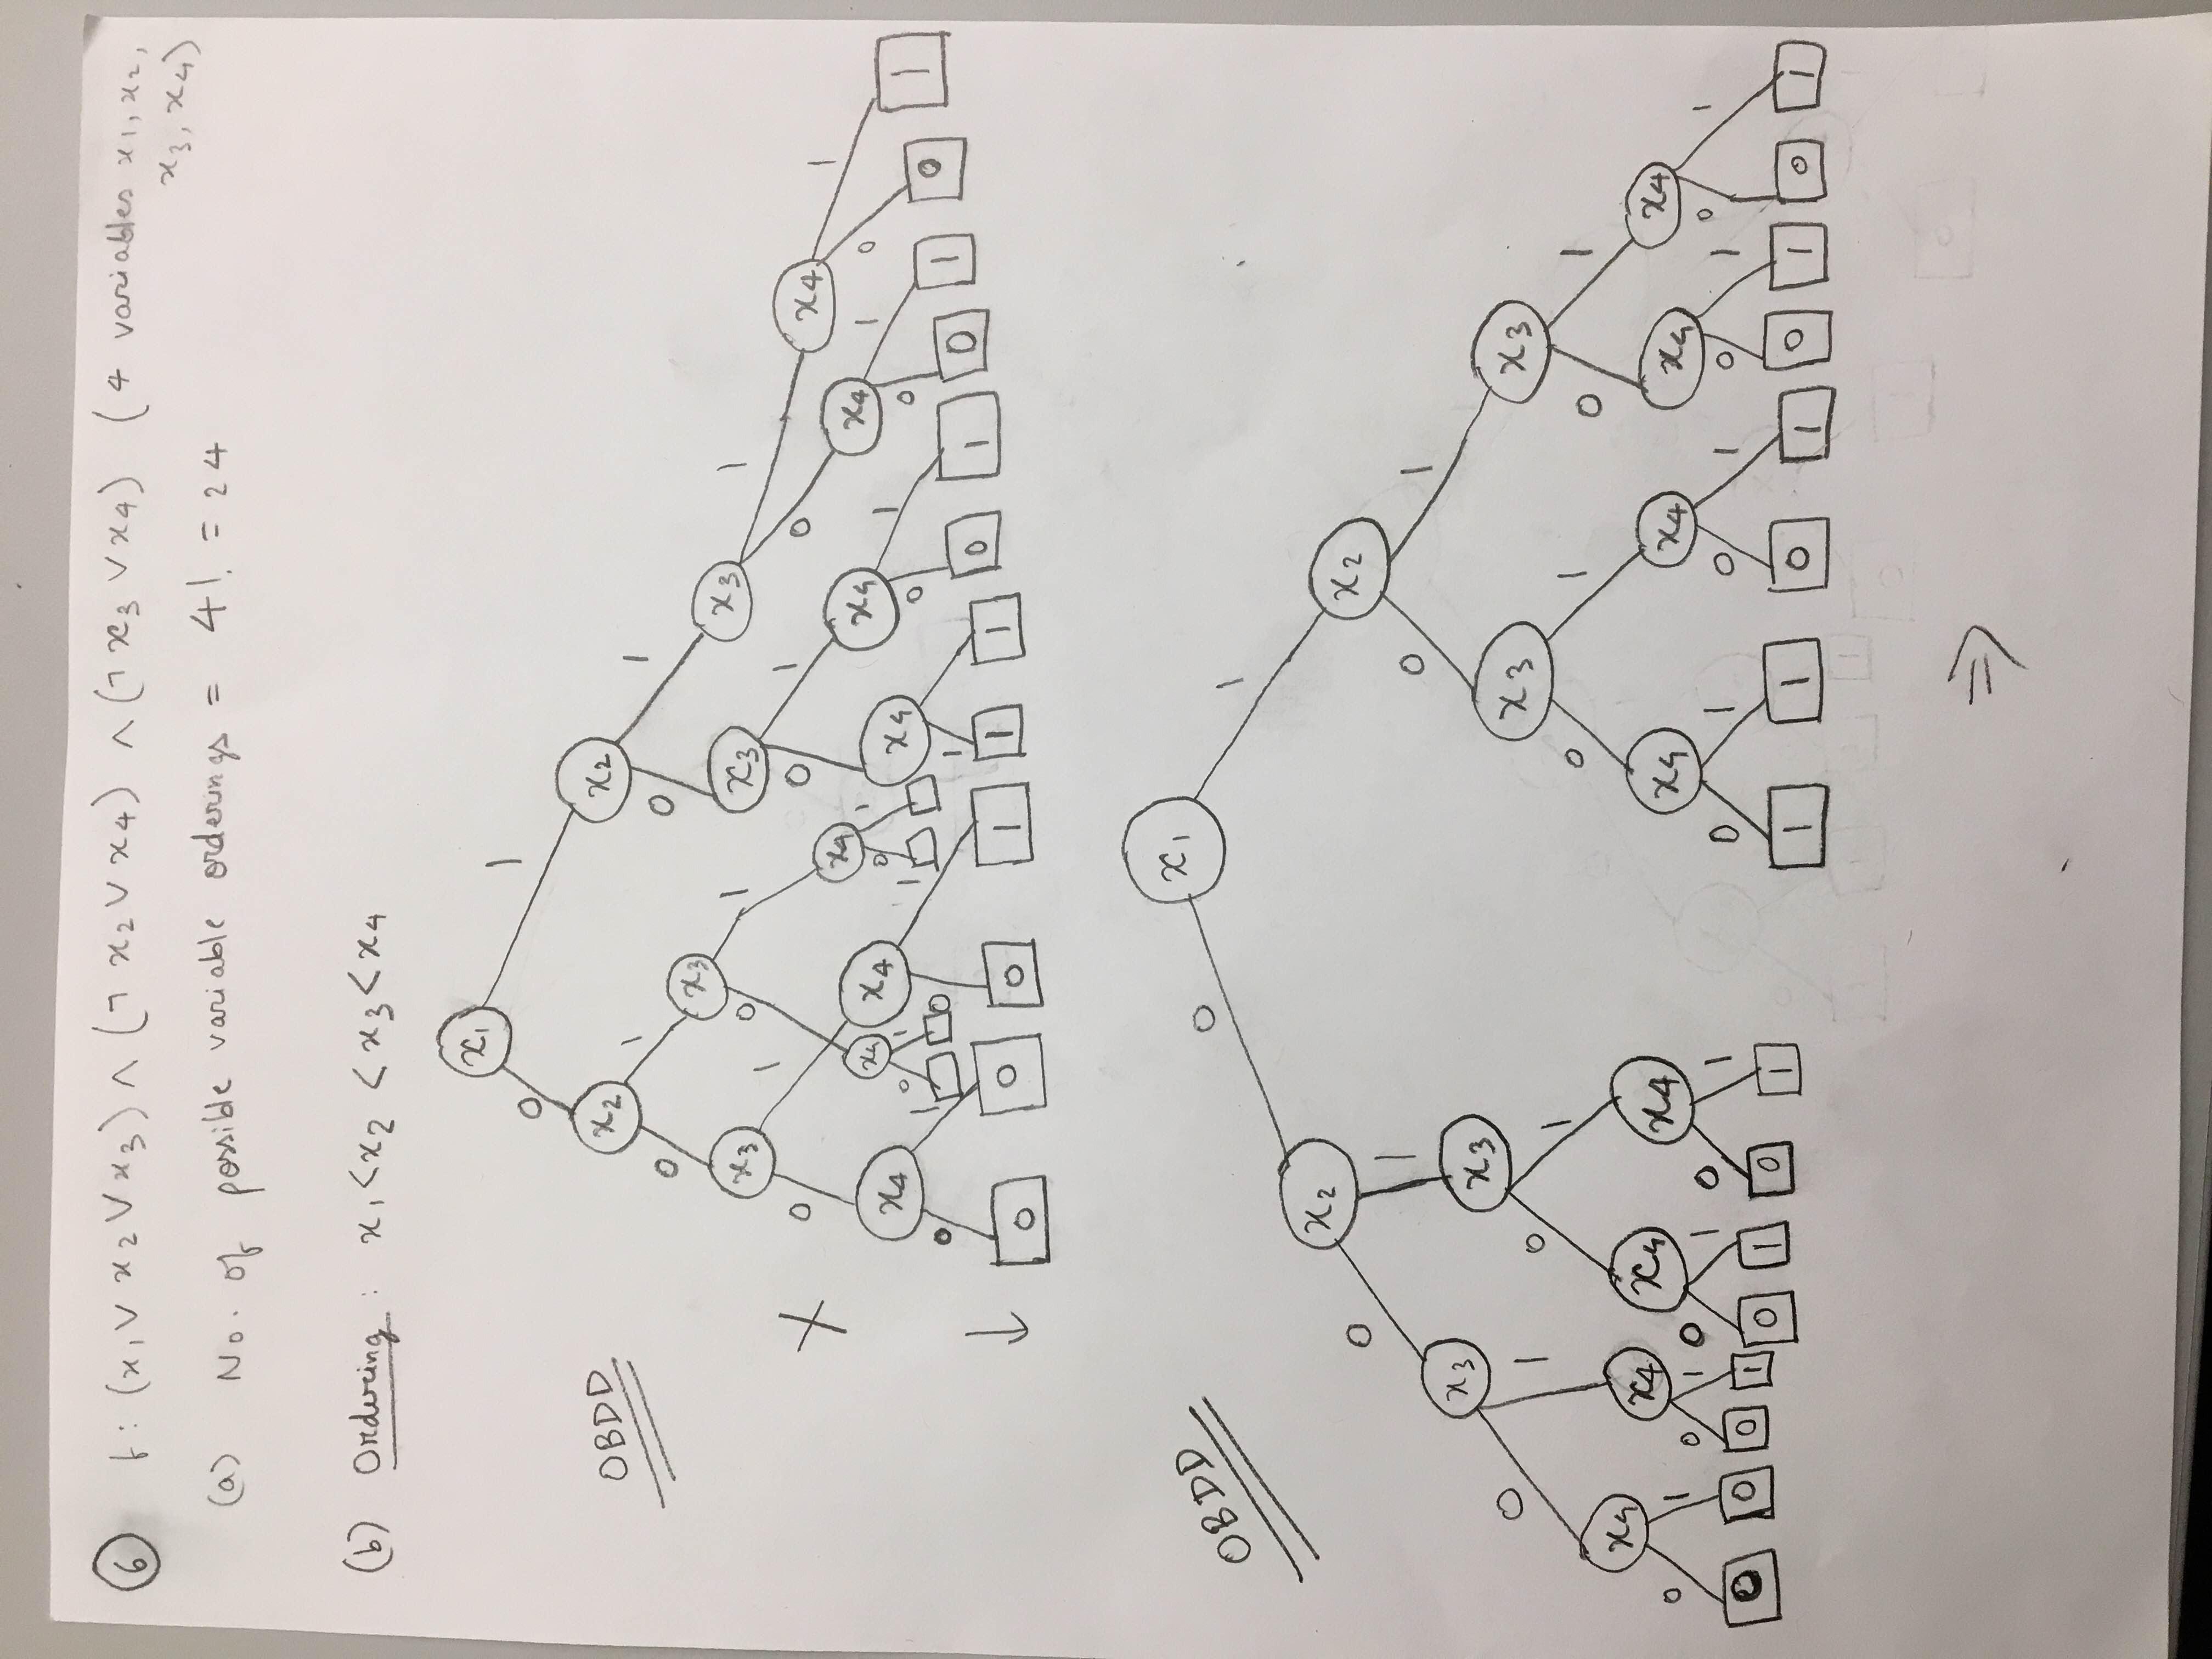 6 f: (x1 ∨ x2 ∨ x3) ∧ (¬ x2 ∨ x4) ∧ (¬ x3 ∨ x4) (4 variables x1, x2,
x3, x4)
(a) No. of possible variable orderings = 4! = 24
(b) Ordering : x1 < x2 < x3 < x4
x1
0 1
OBDD
x2 x2
0 1 0 1
x3 x3 x3 x3
X
0 1 0 1 0 1 0 1
x4 x4 x4 x4 x4 x4 x4 x4
0 1 0 1 0 1 0 1 0 1 0 1 0 1
0 0 0 1 1 1 0 1 0 1 0 1
↓
OBDD
x1
0 1
x2 x2
0 1 0 1
x3 x3 x3 x3
0 1 0 1 0 1 0 1
x4 x4 x4 x4 x4 x4 x4 x4
0 1 0 1 0 1 0 1 0 1 0 1 0 1 0 1
0 0 0 1 0 1 0 1 1 1 0 1 0 1 0 1
⇒